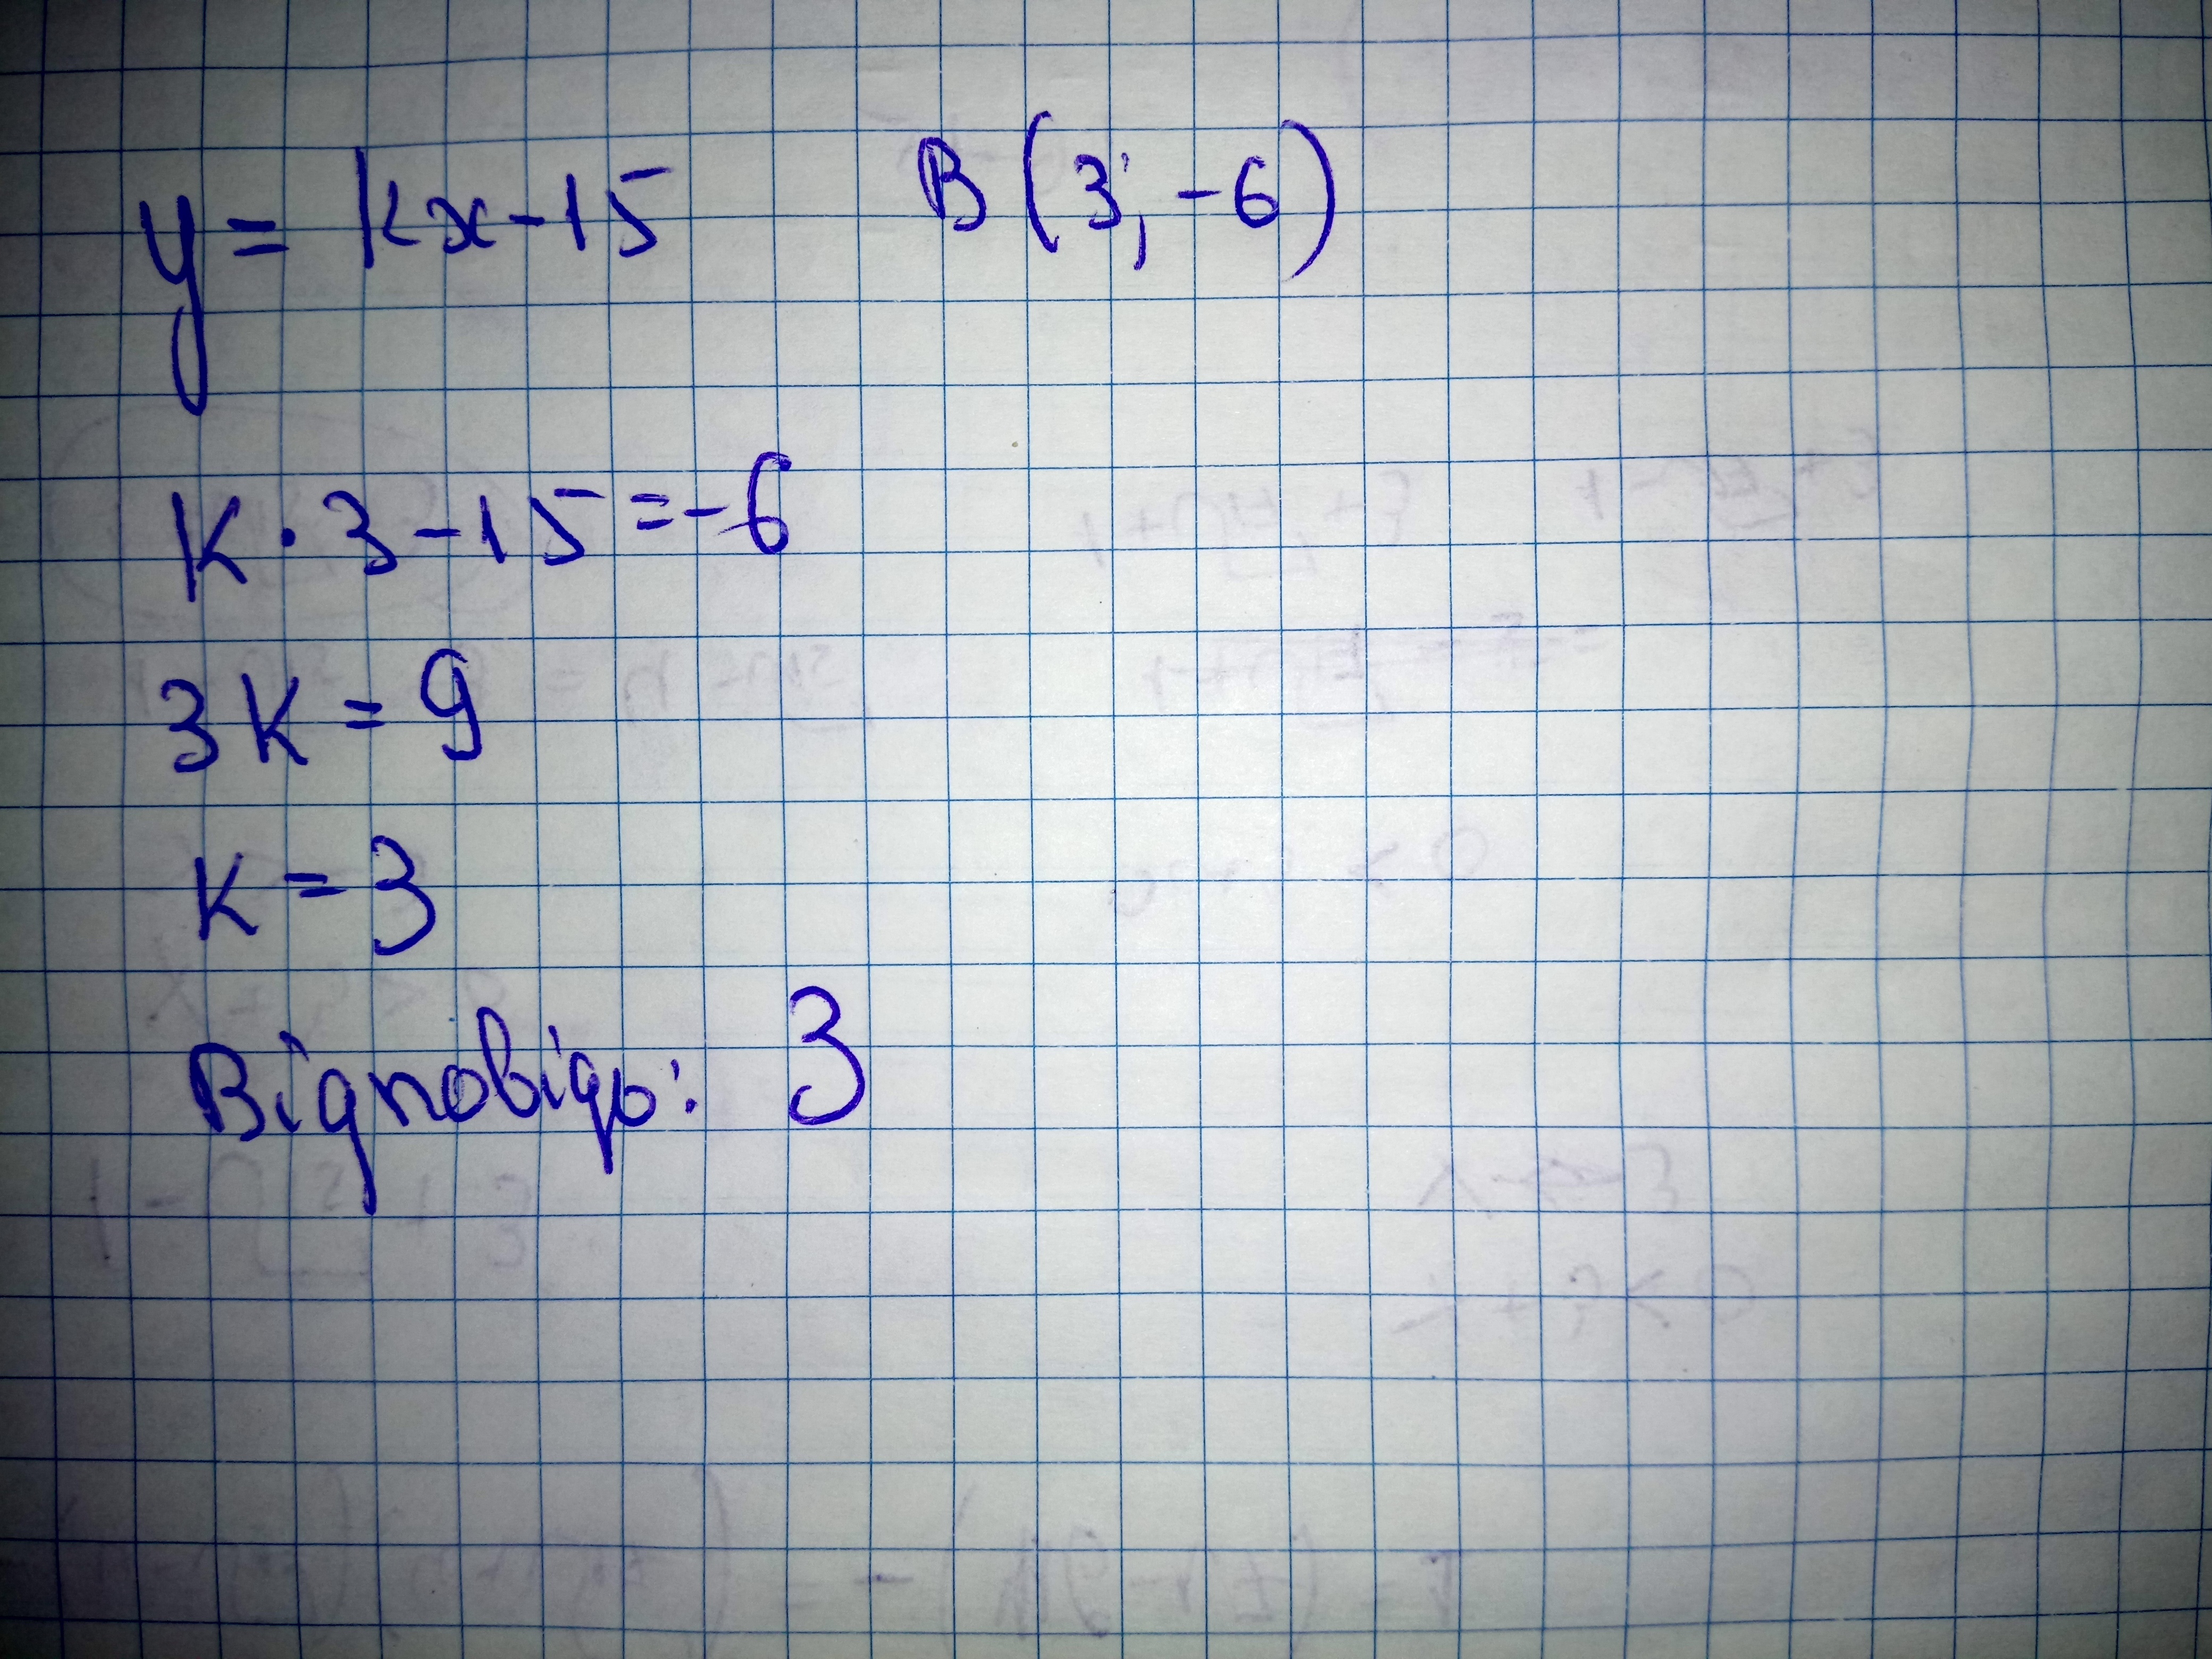 y = kx - 15 B (3; -6)
k · 3 - 15 = -6
3k = 9
k = 3
Відповідь: 3